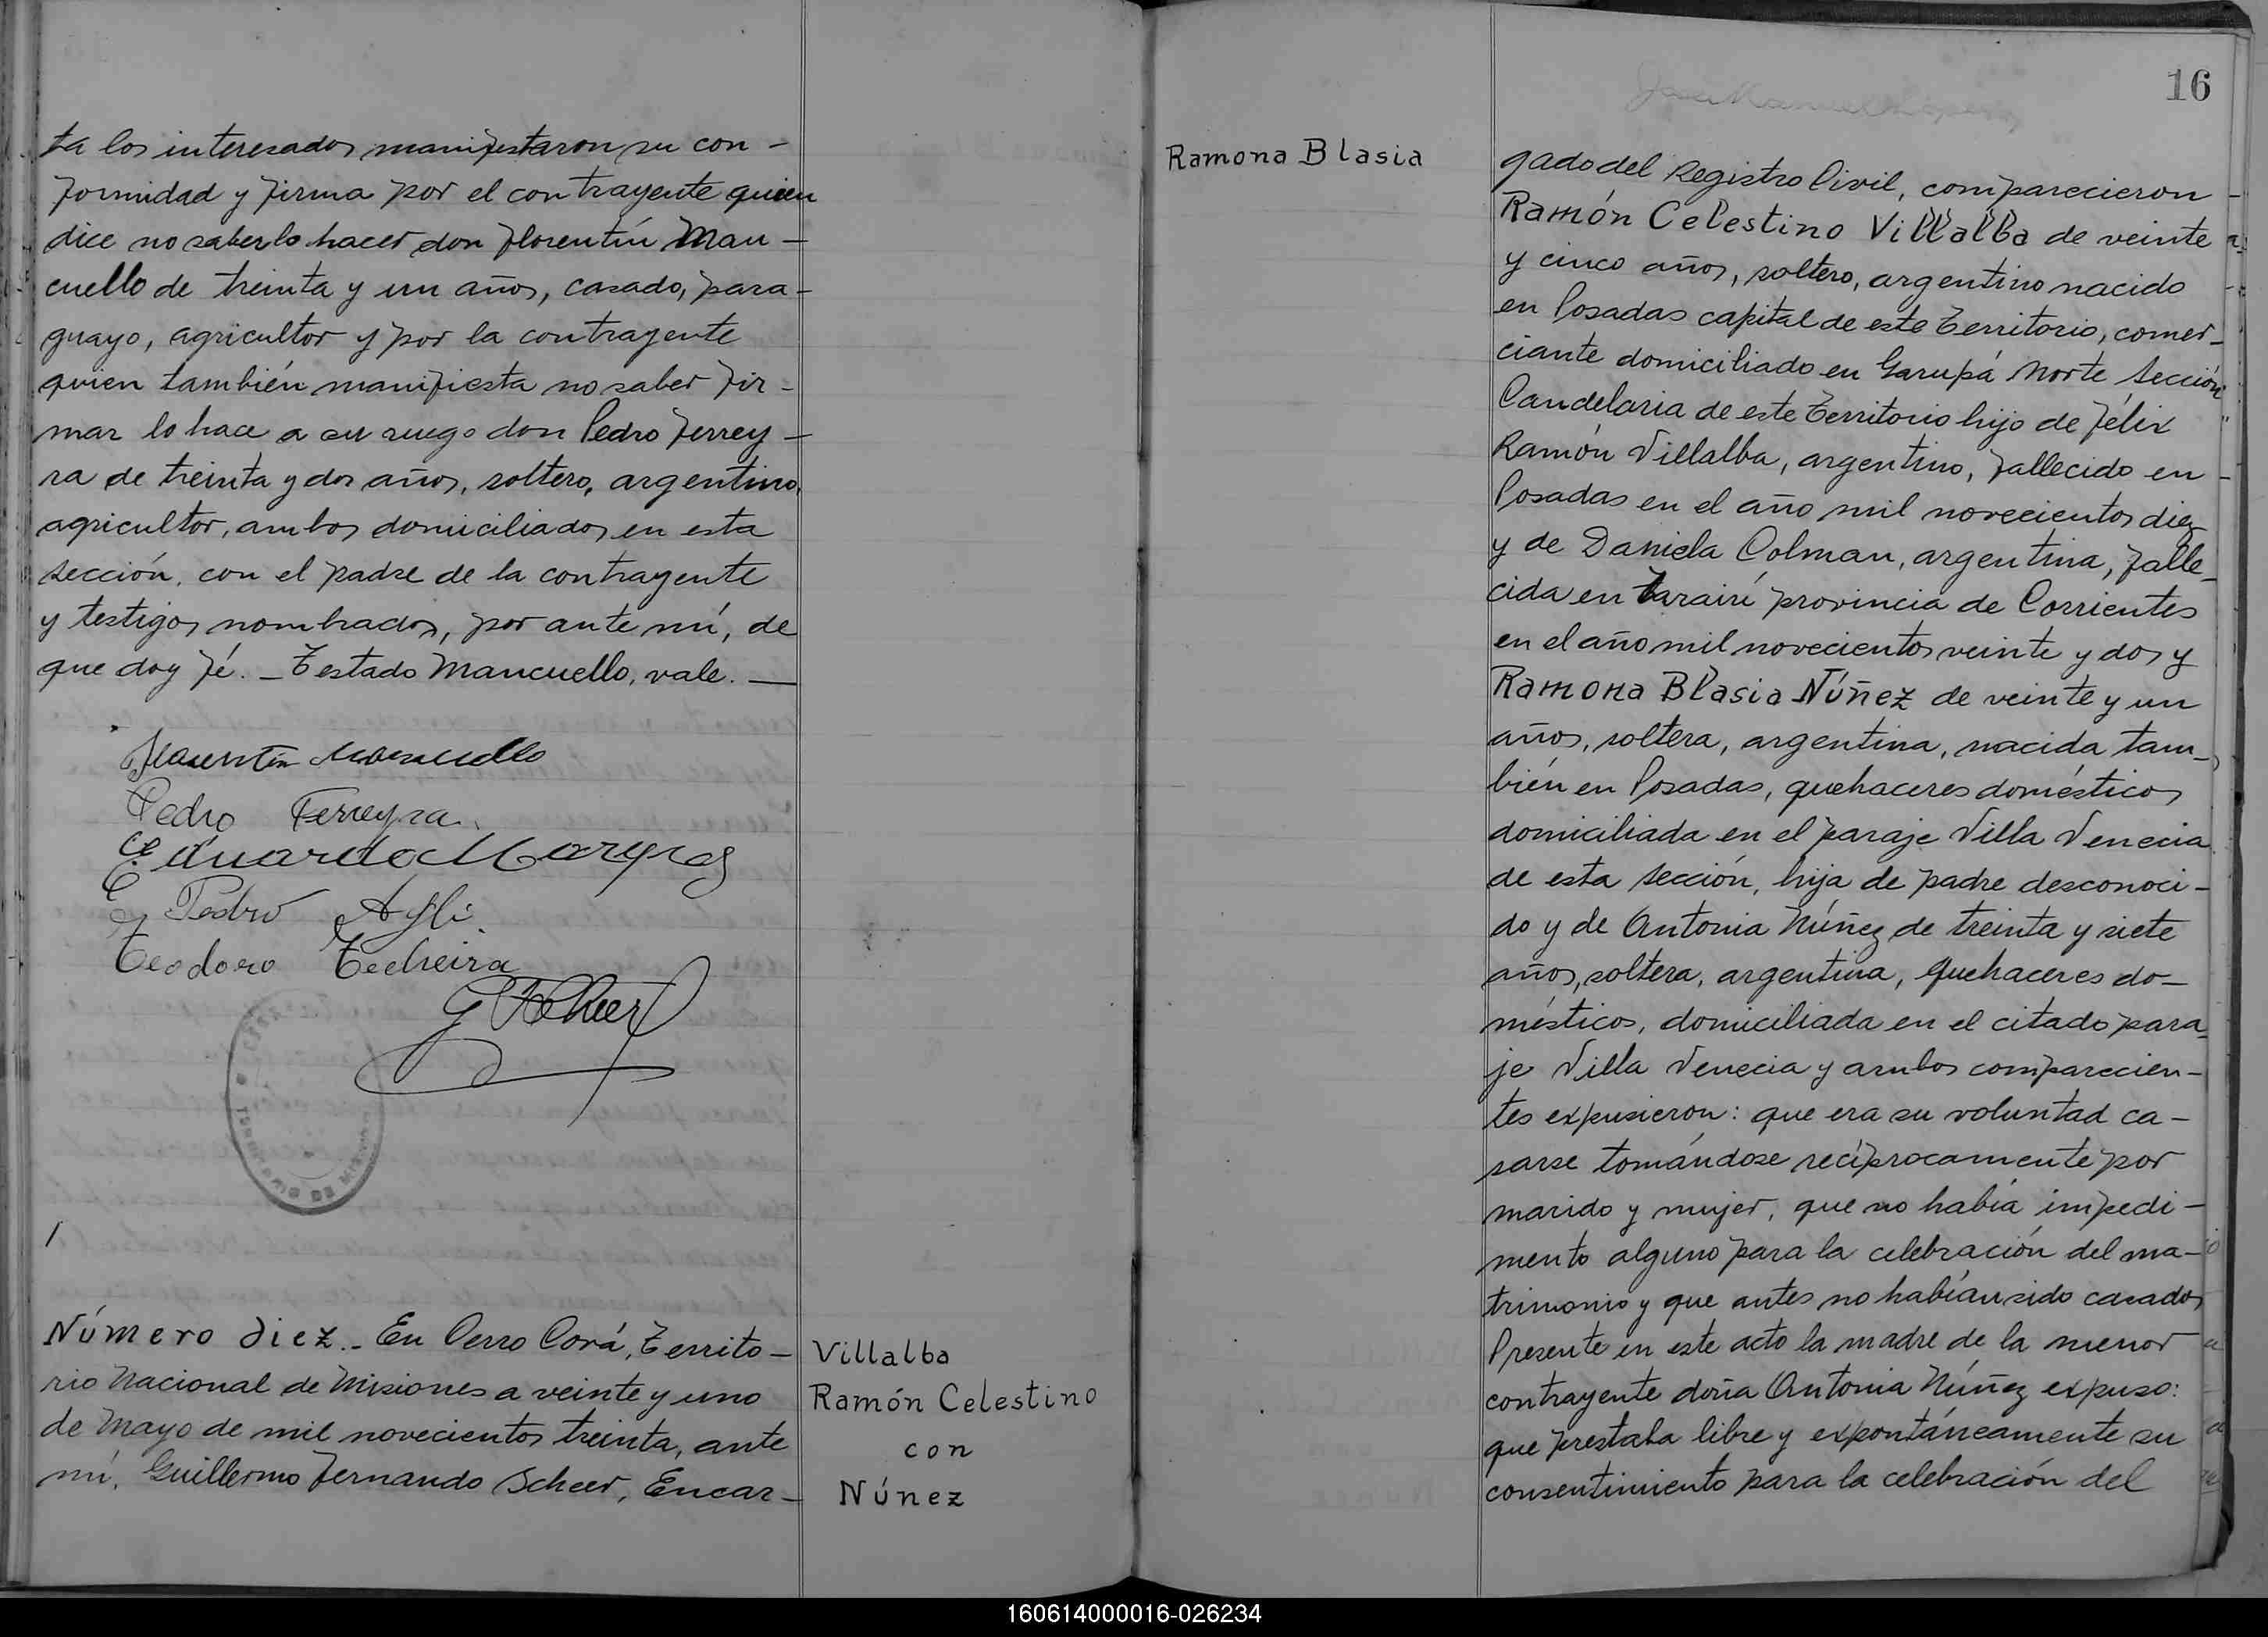 ta los interesados manifestaron su con-
formidad y firma por el contrayente quien
dice no saberlo hacer don Florentín Man-
cuello de treinta y un años, casado, para-
guayo, agricultor y por la contrayente
quien también manifiesta no saber fir-
mar lo hace a su ruego don Pedro Ferrey-
ra de treinta y dos años, soltero, argentino,
agricultor, ambos domiciliados en esta
sección, con el padre de la contrayente
y testigos nombrados, por ante mí, de
que doy fé. _ Testado Mancuello, vale. _
Florentín Mancuello
Pedro Ferreyra
Eduardo
Pedro
Teodoro Techeira
G F Scheer
Número diez._ En Cerro Corá, Territo-
rio Nacional de Misiones a veinte y uno
de Mayo de mil novecientos treinta, ante
mí, Guillermo Fernando Scheer, Encar-
Villalba
Ramón Celestino
con
Núnez
16
Ramona Blasia
gado del Registro Civil, comparecieron
Ramón Celestino Villalba de veinte
y cinco años, soltero, argentino nacido
en Posadas capital de este Territorio, comer-
ciante domiciliado en Garupá Norte, Sección
Candelaria de este Territorio hijo de Félix
Ramón Villalba, argentino, fallecido en
Posadas en el año mil novecientos diez
y de Daniela Colman, argentina, falle-
cida en provincia de Corrientes
en el año mil novecientos veinte y dos y
Ramona Blasia Núñez de veinte y un
años, soltera, argentina, nacida tam-
bién en Posadas, quehaceres domésticos
domiciliada en el paraje Villa Venecia
de esta sección, hija de padre desconoci-
do y de Antonia Núñez de treinta y siete
años, soltera, argentina, quehaceres do-
mésticos, domiciliada en el citado para-
je Villa Venecia y ambos comparecien-
tes expusieron: que era su voluntad ca-
sarse tomándose recíprocamente por
marido y mujer, que no había impedi-
mento alguno para la celebración del ma-
trimonio y que antes no habían sido casados
Presente en este acto la madre de la menor
contrayente doña Antonia Núñez expuso:
que prestaba libre y expontáneamente su
consentimiento para la celebración del
160614000016-026234